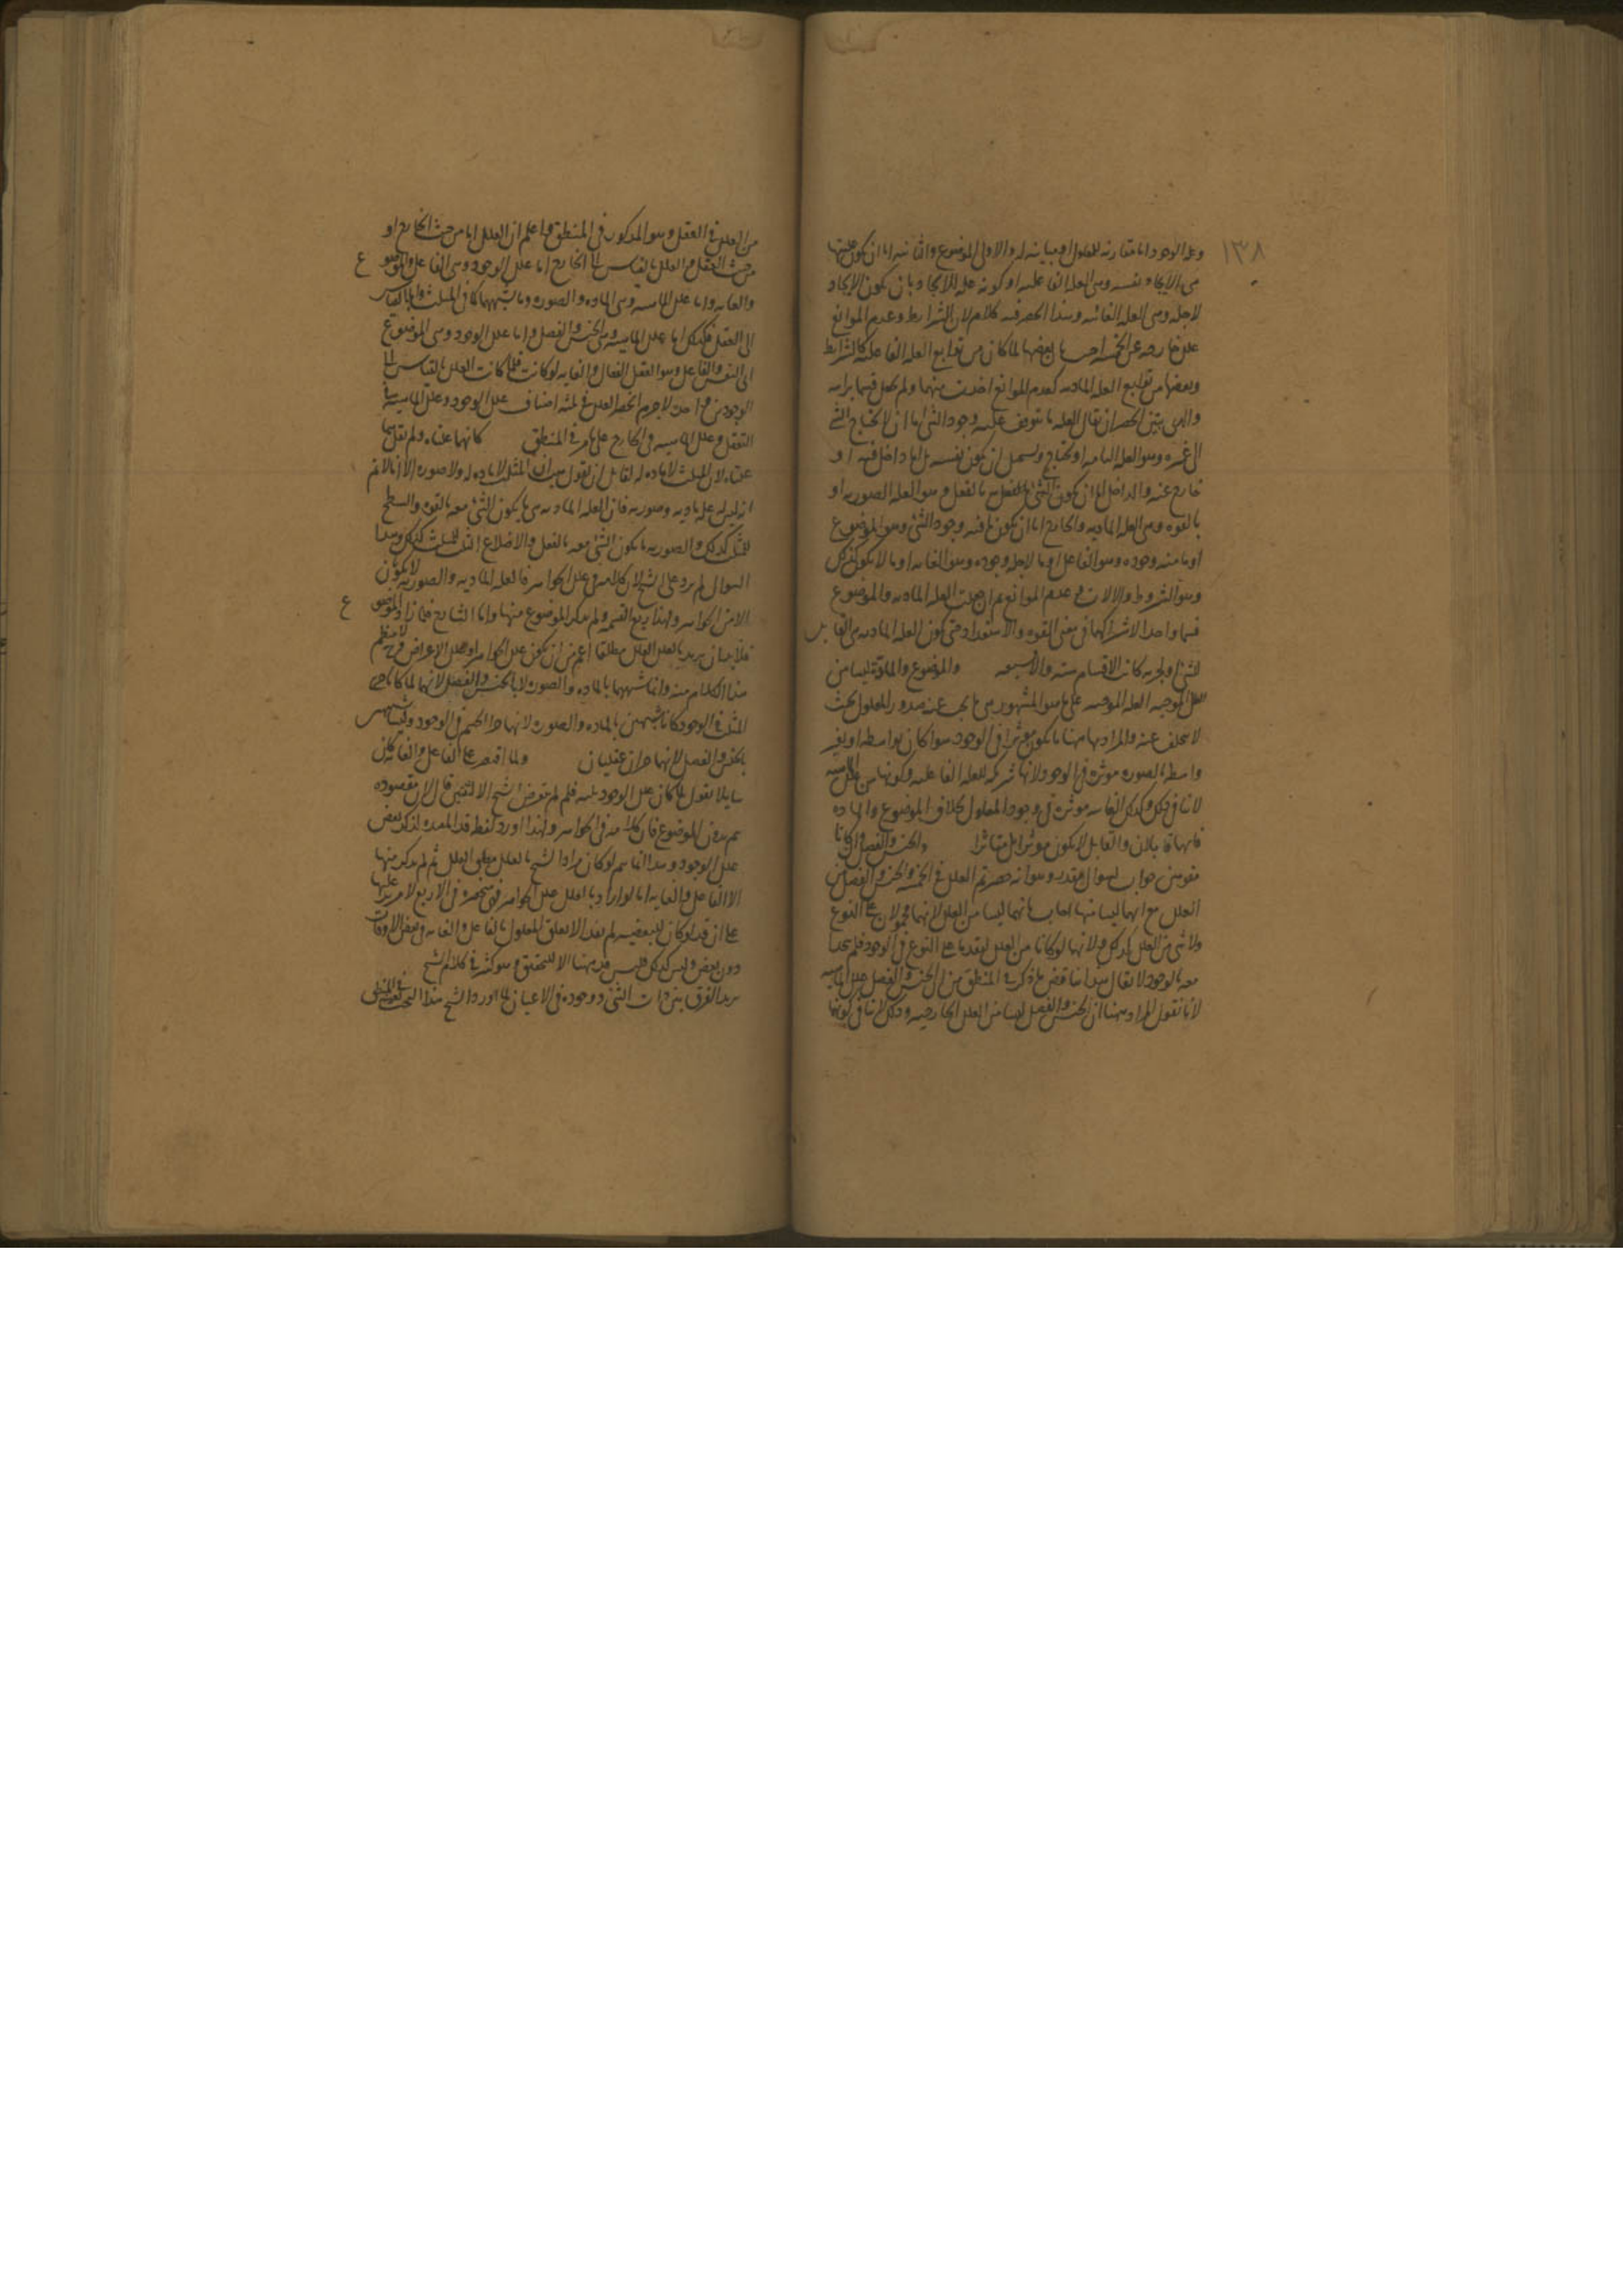 ١٣٨
وعلة الوجود اما مقارنه للمعلول او مباينه له والاولى الموضوع والثانيه اما ان يكون عليتها
هى الايجاد نفسه وهى العله الفاعليه او كونه عله للايجاد بان يكون الايجاد
لاجله وهى العله الغائيه وهذا الحصر فيه كلام لان الشرايط وعدم الموانع
علل خارجه عن الخمسه اجيب بان بعضها لما كان من توابع العله الفاعليه كالشرايط
وبعضها من توابع العله الماديه كعدم الموانع اخذت منهما ولم يجعل قسما براسه
والذى يتبين الحصر ان يقال العله ما يتوقف عليه وجود الشئ اما ان لا يحتاج الشئ
الى غيره وهو العله التامه او يحتاج ويستحيل ان يكون نفسه بل اما داخل فيه او
خارج عنه والداخل اما ان يكون الشئ بالفعل وهو العله الصوريه او
بالقوه وهى العله الماديه والخارج اما ان يكون ما فيه وجود الشئ وهو الموضوع
او ما منه وجوده وهو الفاعل او ما لاجله وجوده وهو الغايه او ما لا يكون كذلك
وهو الشروط والالات وعدم الموانع ثم ان جعلت العله الماديه والموضوع
قسما واحدا لاشتراكهما فى معنى القوه والاستعداد حتى يكون العله الماديه هى القابل
للشئ او لجزءه كانت الاقسام سته والا سبعه والموضوع والمادة ليسا من
العلل الموجبه العله الموجبه على ما هو المشهور هى ما يجب عنه صدور المعلول بحيث
لا يتخلف عنه والمراد بها ههنا ما يكون مؤثرا فى الوجود سوا كان بواسطه او بغير
واسطه فالصوره مؤثره فى الوجود لانها شريكه للعله الفاعليه وكونها من علل الماهيه
لا ينافى ذلك وكذلك الغايه مؤثره فى وجود المعلول بخلاف الموضوع والماده
فانهما قابلان والقابل لا يكون مؤثرا بل متاثرا والجنس والفصل وان كانا
مقومين جواب لسوال مقدر وهو انه حصرتم العلل فى الخمسه والجنس والفصل من
العلل مع انهما ليسا منها اجاب بانهما ليسا من العلل لانهما محمولان على النوع
ولا شئ من العلل كذلك ولانهما لو كانا من العلل لتقدما على النوع فى الوجود فلم يتحدا
معه بالوجود لا يقال هذا يناقض ما ذكر فى المنطق من ان الجنس والفصل علل الماهيه
لانا نقول المراد ههنا ان الجنس والفصل ليسا من العلل الخارجيه وذلك لا ينافى كونهما
من العلل فى العقل وهو المذكور فى المنطق واعلم ان العلل اما من حيث الخارج او
من حيث العقل والعلل بالقياس الى الخارج اما علل الوجود وهى الفاعل والموضوع
والغايه واما علل الماهيه وهى الماده والصوره وما يشبههما كما فى المثلث واما بالقياس
الى العقل فكذلك اما علل الماهيه وهى الجنس والفصل واما علل الوجود وهى الموضوع
اى النفس والفاعل وهو العقل الفعال والغايه لو كانت فلما كانت العلل بالقياس الى
الوجودين واحدة لا جرم انحصر العلل فى ثلثه اصناف علل الوجود وعلل الماهيه فى
التعقل وعلل الماهيه فى الخارج على ما مر فى المنطق كانهما علتاه ولم يقل هما
علتاه لان المثلث لا ماده له لقايل ان يقول هب ان المثلث لا ماده له ولا صوره الا انا لا نم
ان ليس له عله ماديه وصوريه فان العله الماديه هى ما يكون الشئ معه بالقوه والسطح
للمثلث كذلك والصوريه ما يكون الشئ معه بالفعل والاضلاع الثلث للمثلث كذلك وهذا
السوال لم يرد على الشيخ لان كلامه فى علل الجواهر فالعله الماديه والصوريه لا يكونان
الا من الجواهر ولهذا ربع القسمه ولم يذكر الموضوع منها واما الشارح فلما زاد الموضوع
فلا بد ان يريد بالعلل العلل مطلقا اعم من ان يكون علل الجواهر او علل الاعراض فح لا ينتظم
هذا الكلام منه وانما شبههما بالماده والصوره لا بالجنس والفصل لانهما لما كانا جزئى
المثلث فى الوجود كانا شبيهين بالماده والصوره لانهما جزءا الجسم فى الوجود وليسا شبيهين
بالجنس والفصل لانهما جزءان عقليان ولما اقتصر على الفاعل والغايه كان
سايلا يقول لما كان علل الوجود ثلثه فلم لم يتعرض الشيخ الا لاثنتين قال لان مقصوده
لم يتعلق بالموضوع فان كلامه فى الجواهر ولهذا اورد لفظ قد المفيده لذكر بعض
علل الوجود وهذا انما يتم لو كان مراد الشيخ بالعلل مطلق العلل ثم لم يذكر منها
الا الفاعل والغايه اما لو اراد بالعلل علل الجواهر فهى منحصره فى الاربع لا مزيد عليها
على ان قد لو كان للتبعضيه لم يفد الا تعلق المعلول بالفاعل والغايه فى بعض الاوقات
دون بعض وليس كذلك فليس قد ههنا الا للتحقيق وهو كثير فى كلام الشيخ
يريد الفرق بين ذات الشئ ووجوده فى الاعيان لما اورد الشيخ هذا البحث فى المنطق